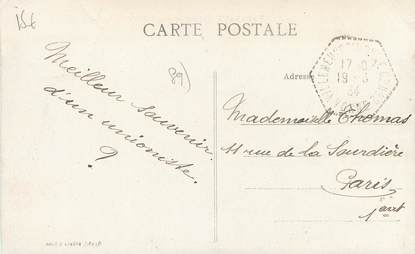 15€
CARTE POSTALE
89)
Meilleur souvenir
d'un unioniste.
?
Adresse
17-9
19-3
34
Mademoiselle Thomas
11 rue de la Sourdière
Paris
1er arrt